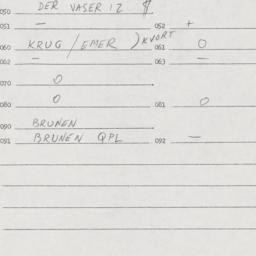 050 DER VASER 12 ₰
051 — 052 +
060 KRUG / EMER ) KVORT 061 O
062 — 063 —
070 O
080 O 081 O
090 BRUNEN
091 BRUNEN QPL 092 —